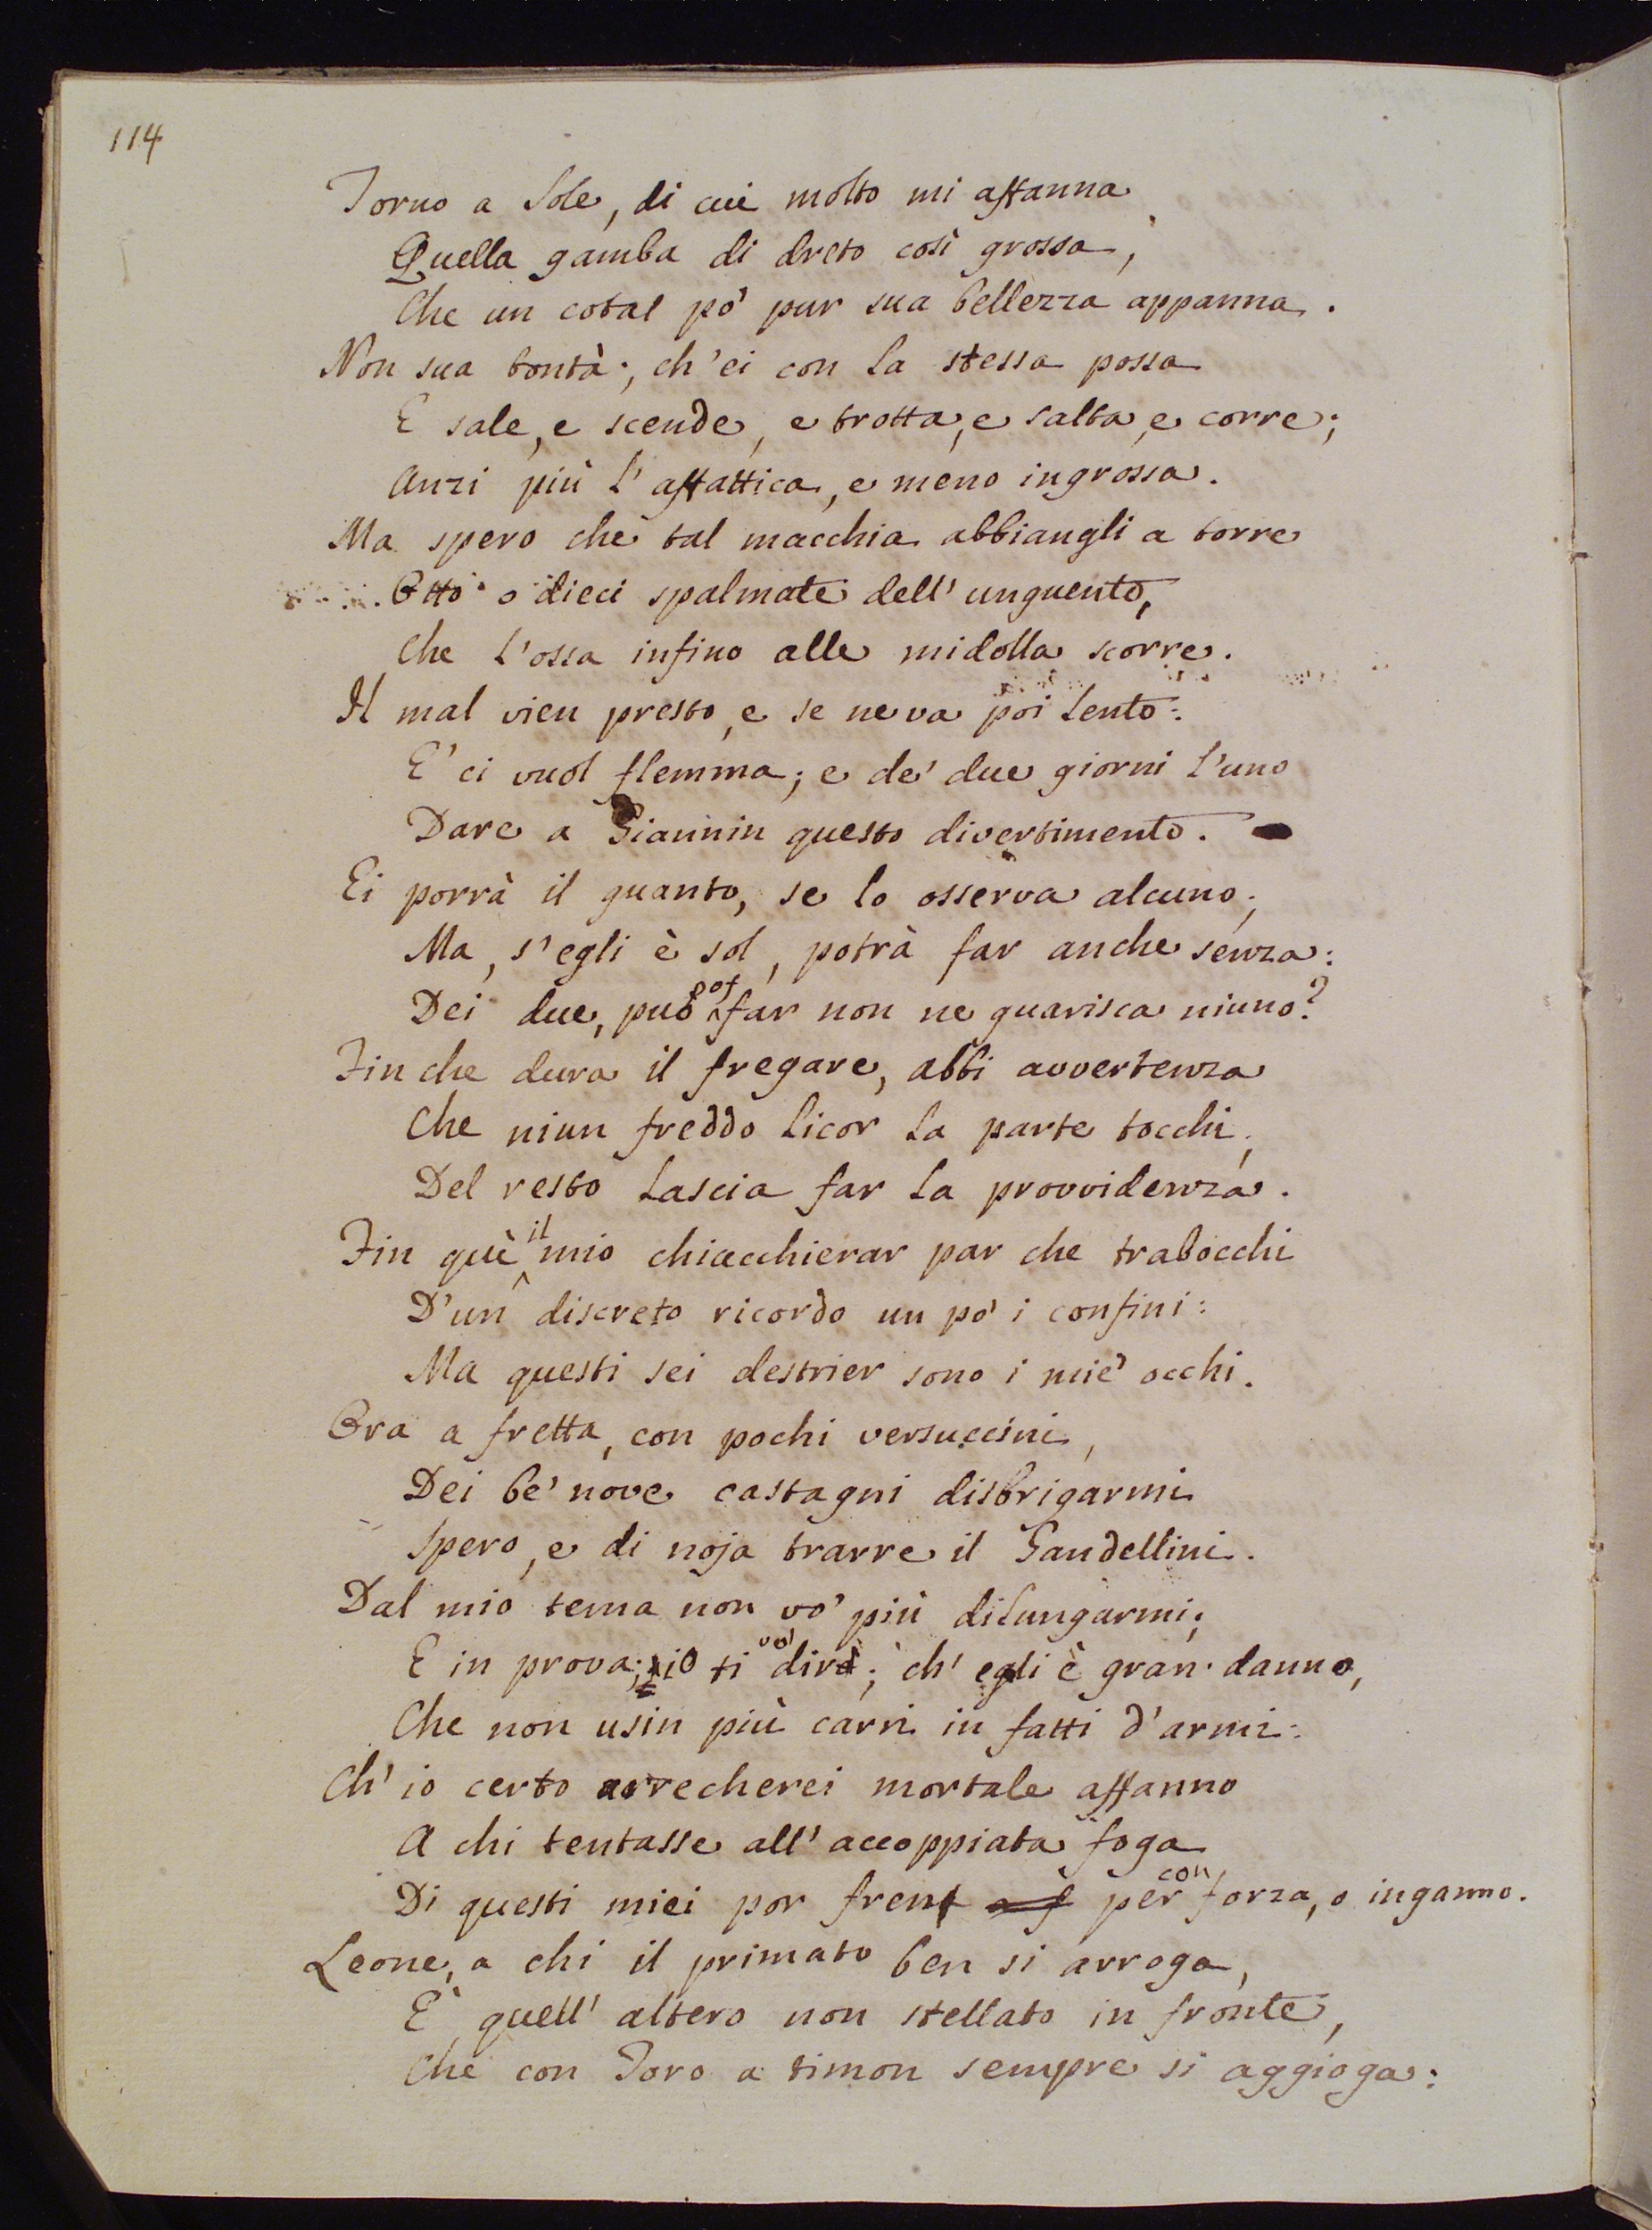 114
Torno a Sole, di cui molto mi affanna
Quella gamba di dreto così grossa,
Che un cotal pò pur sua bellezza appanna.
Non sua bontà; ch'ei con la stessa possa
E sale, e scende, e trotta, e salta, e corre;
Anzi più l'affattica, e meno ingrossa.
Ma spero che tal macchia abbiangli a torre
Otto o dieci spalmate dell'unguento,
Che l'ossa infino alle midolla scorre.
Il mal vien presto, e se ne va poi lento:
E' ci vuol flemma; e de' due giorni l'uno
Dare a Giannin questo divertimento.
Ei porrà il guanto, se lo osserva alcuno;
Ma, s'egli è sol, potrà far anche senza:
Dei due, può far non ne guarisca niuno?
Fin che dura il fregare, abbi avvertenza
Che niun freddo licor la parte tocchi;
Del resto lascia far la provvidenza.
Fin quì il mio chiacchierar par che trabocchi
D'un discreto ricordo un pò i confini:
Ma questi sei destrier sono i mie' occhi.
Ora a fretta, con pochi versuccini,
Dei be' nove castagni disbrigarmi
Spero, e di noja trarre il Gandellini.
Dal mio tema non vo' più dilungarmi;
E in prova; io ti vo' dir; ch'egli è gran danno,
Che non usin più carri in fatti d'armi:
Ch'io certo arrecherei mortale affanno
A chi tentasse all'accoppiata foga
Di questi miei por freno per con forza, o inganno.
Leone, a chi il primato ben si arroga,
E' quell'altero non stellato in fronte,
Che con Toro a timon sempre si aggioga: